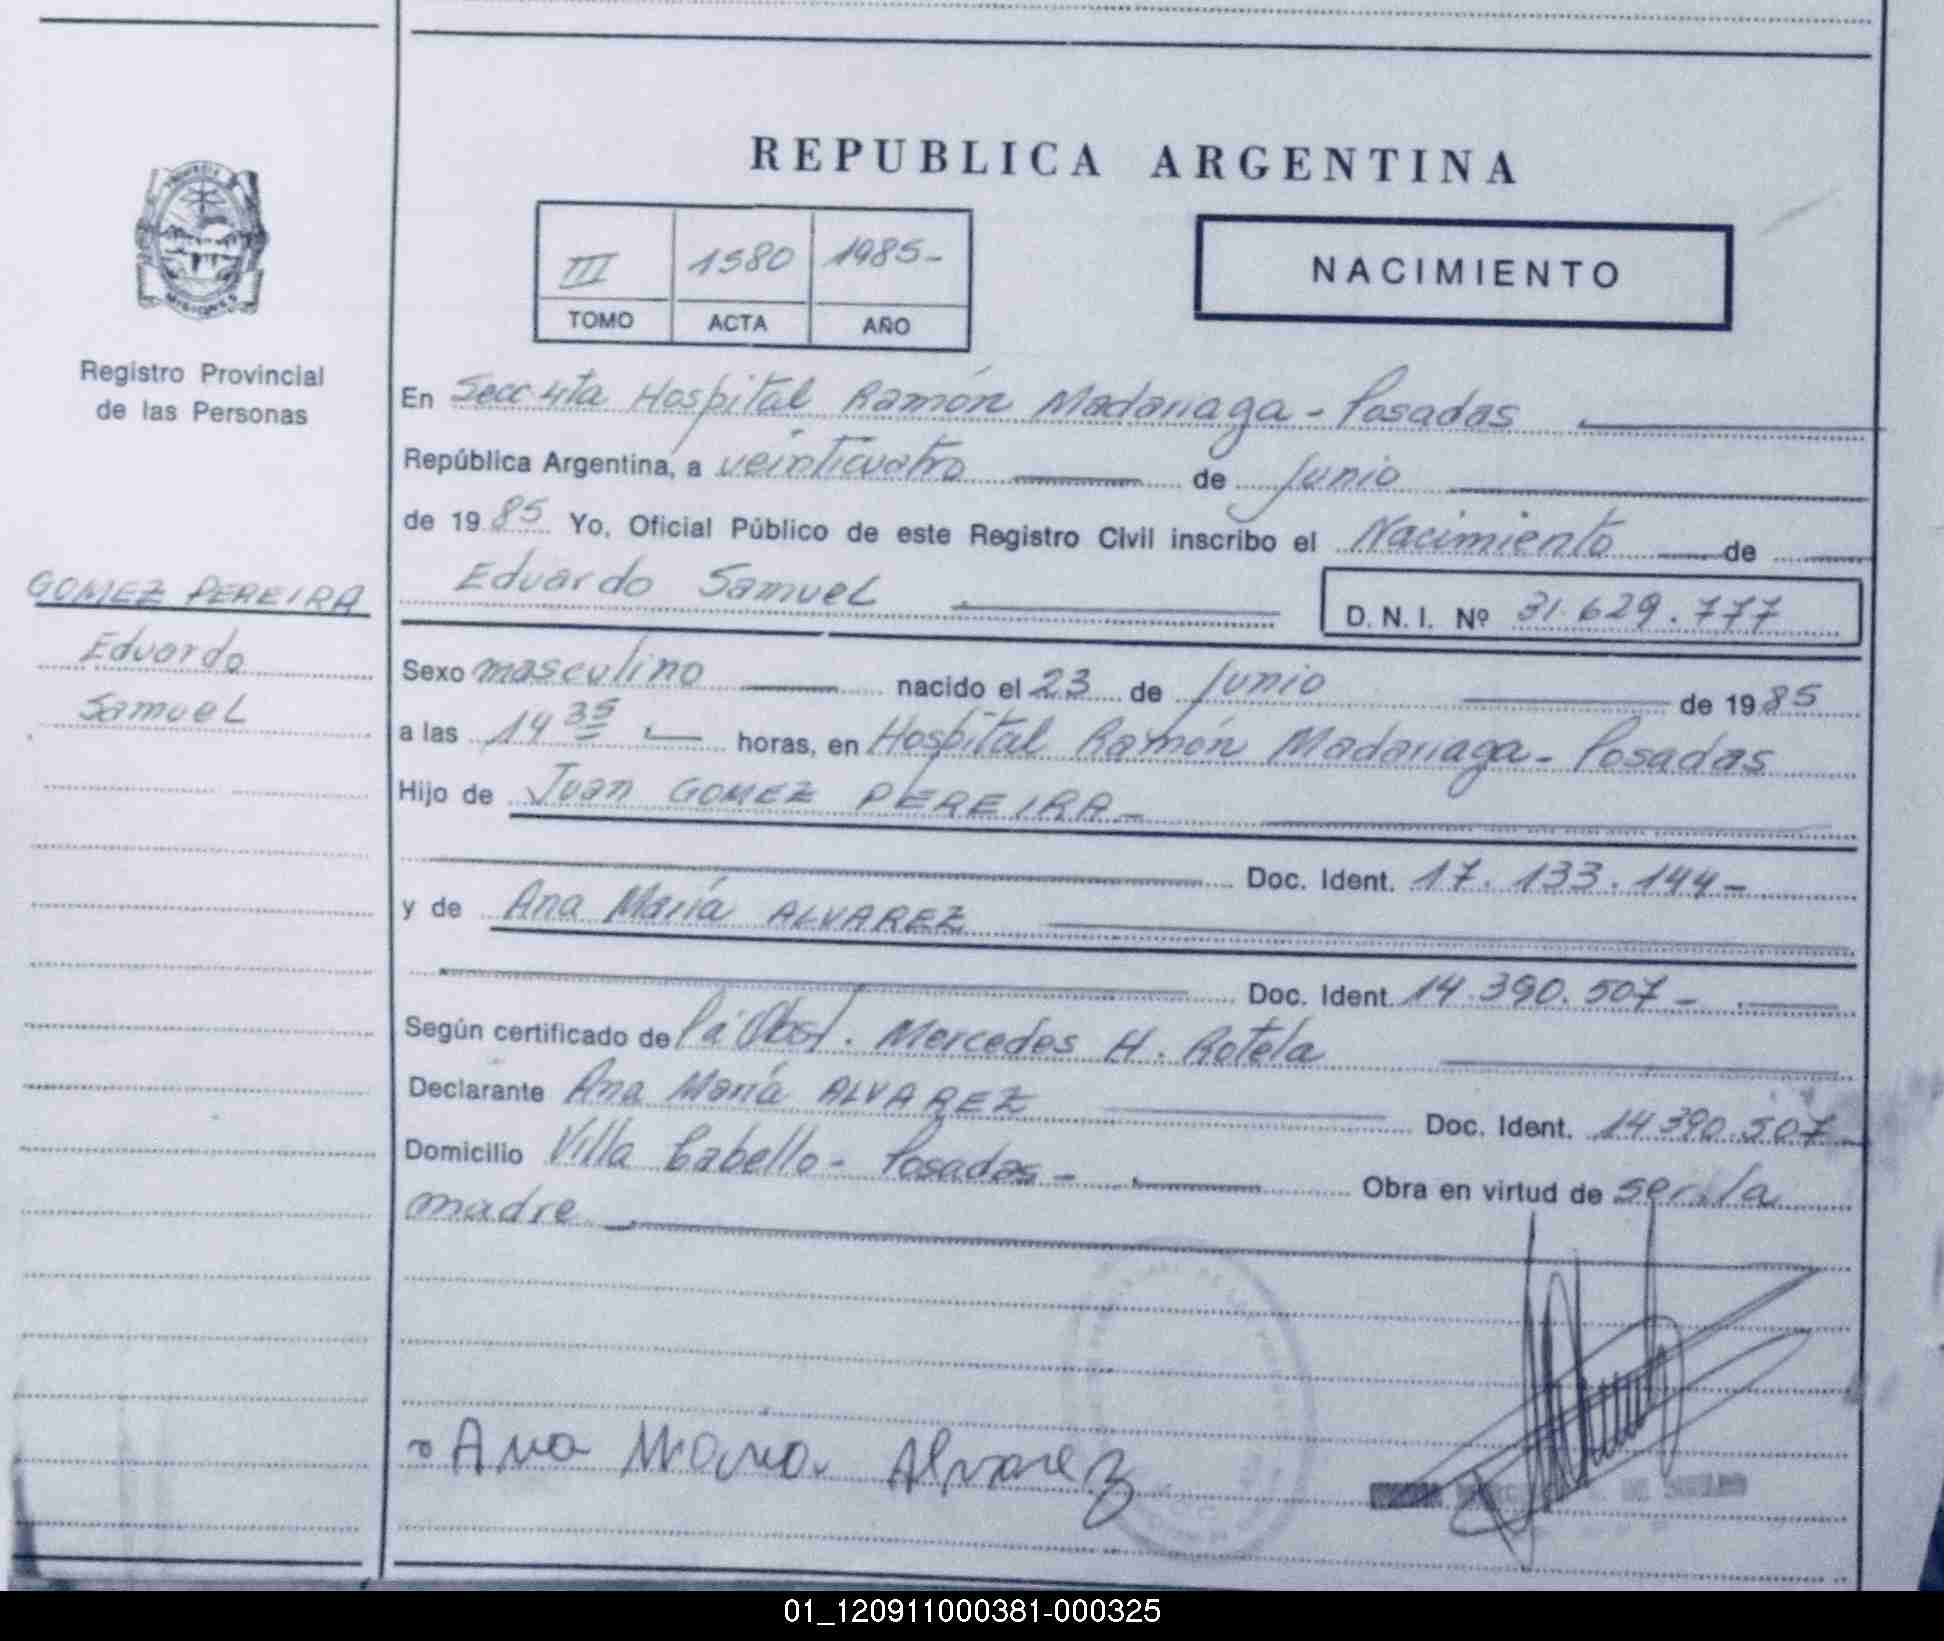 REPUBLICA ARGENTINA
III 1580 1985-
TOMO ACTA AÑO
NACIMIENTO
Registro Provincial
de las Personas
GOMEZ PEREIRA
Eduardo
Samuel
En Secc 4ta Hospital Ramón Madariaga - Posadas
República Argentina, a veinticuatro de Junio
de 1985 Yo, Oficial Público de este Registro Civil inscribo el Nacimiento de
Eduardo Samuel D. N. I. Nº 31.629.777
Sexo masculino nacido el 23 de Junio de 1985
a las 14 35 horas, en Hospital Ramón Madariaga - Posadas
Hijo de Juan GOMEZ PEREIRA -
Doc. Ident. 17.133.144 -
y de Ana María ALVAREZ
Doc. Ident. 14.390.507 -
Según certificado de Pa Obst. Mercedes H. Rotela
Declarante Ana María ALVAREZ Doc. Ident. 14390.507
Domicilio Villa Cabello - Posadas - Obra en virtud de ser la
madre
Ana Maria Alvarez
01_120911000381-000325